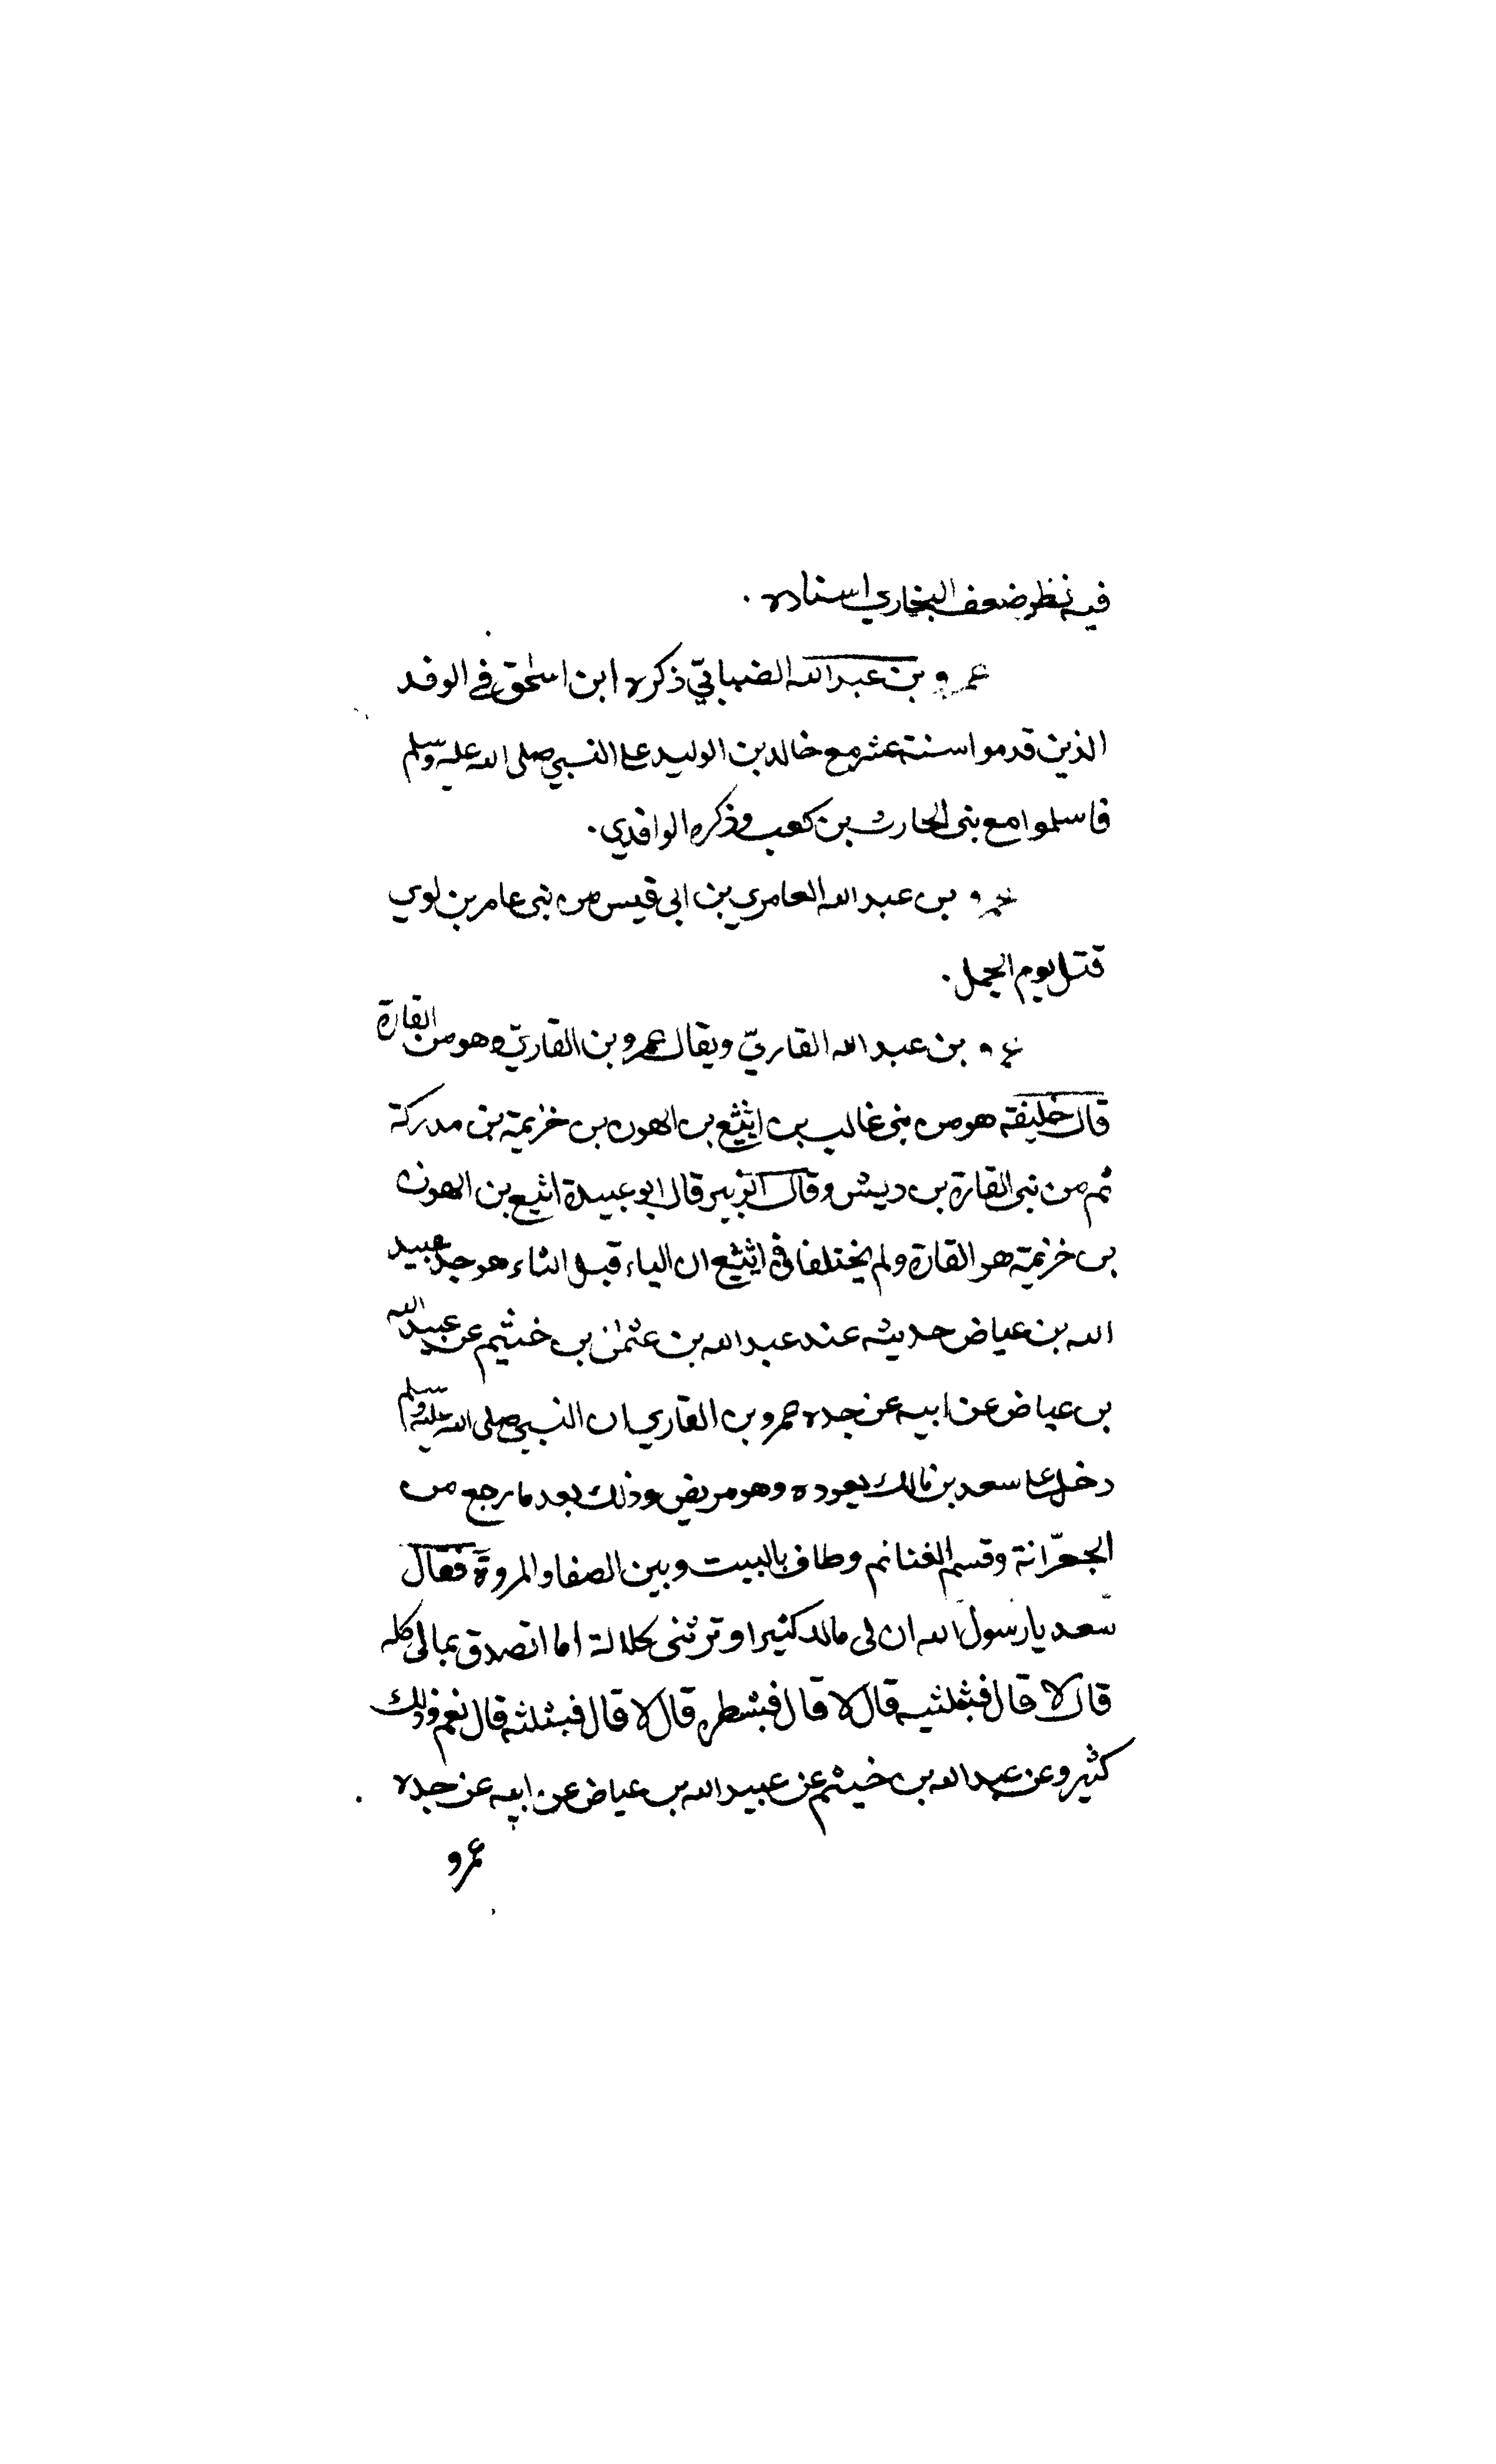 فيه نظر ضعف البخاري اسناده .
عمرو بن عبد الله الضبابيّ ذكره ابن اسحٰق في الوفد
الذين قدموا سنة عشر مع خالد بن الوليد علي النبي صلى الله عليه وسلم
فاسلموا مع بنى الحارث بن كعب وذكره الواقدي .
عمرو بن عبد الله العامري بن ابى قيس من بنى عامر بن لوي
قتل يوم الجمل .
عمرو بن عبد الله القاريّ ويقال عمرو بن القاريّ وهو من القارة
قال خليفة هو من بنى غالب بن ايثع بن الهون بن خزيمة بن مدركة
ثم من بنى القارة بن ديش وقال الزبير قال ابو عبيدة ايثع بن الهون
بن خزيمة هو القارة ولم يختلفا في ايثع ان الياء قبل الثاء هو جد عبيد
الله بن عياض حديثه عند عبد الله بن عثمٰن بن خثيم عن عبيد الله
بن عياض عن ابيه عن جده عمرو بن القاري ان النبي صلى الله عليه وسلم
دخل علي سعد بن مالك يعوده وهو مريض وذلك بعد ما رجع من
الجعرّانة وقسم الغنائم وطاف بالبيت وبين الصفا والمروة فقال
سعد يا رسول الله ان لى مالا كثيرا وترثنى كلالة اما اتصدق بمالى كله
قال لا قال فبثلثيه قال لا قال فبشطره قال لا قال فبثلثه قال نعم وذلك
كثير وعن عبد الله بن خيثم عن عبيد الله بن عياض عن ابيه عن جده
عمرو